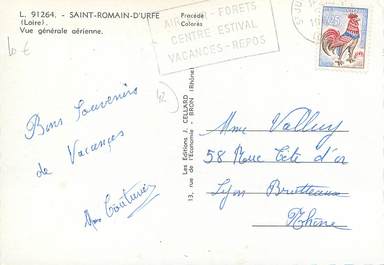 L. 91264. - SAINT-ROMAIN-D'URFE
(Loire).
Vue générale aérienne.
Procédé
Coloréx
FORETS
CENTRE ESTIVAL
VACANCES - REPOS
0,25
10 €
Bons Souvenirs
de Vacances
Mme Couturier
Les Editions J. CELLARD
13, rue de l'Economie - BRON (Rhône)
Mme Valluy
58 Rue Tête d'or
Lyon Brotteaux
Rhône